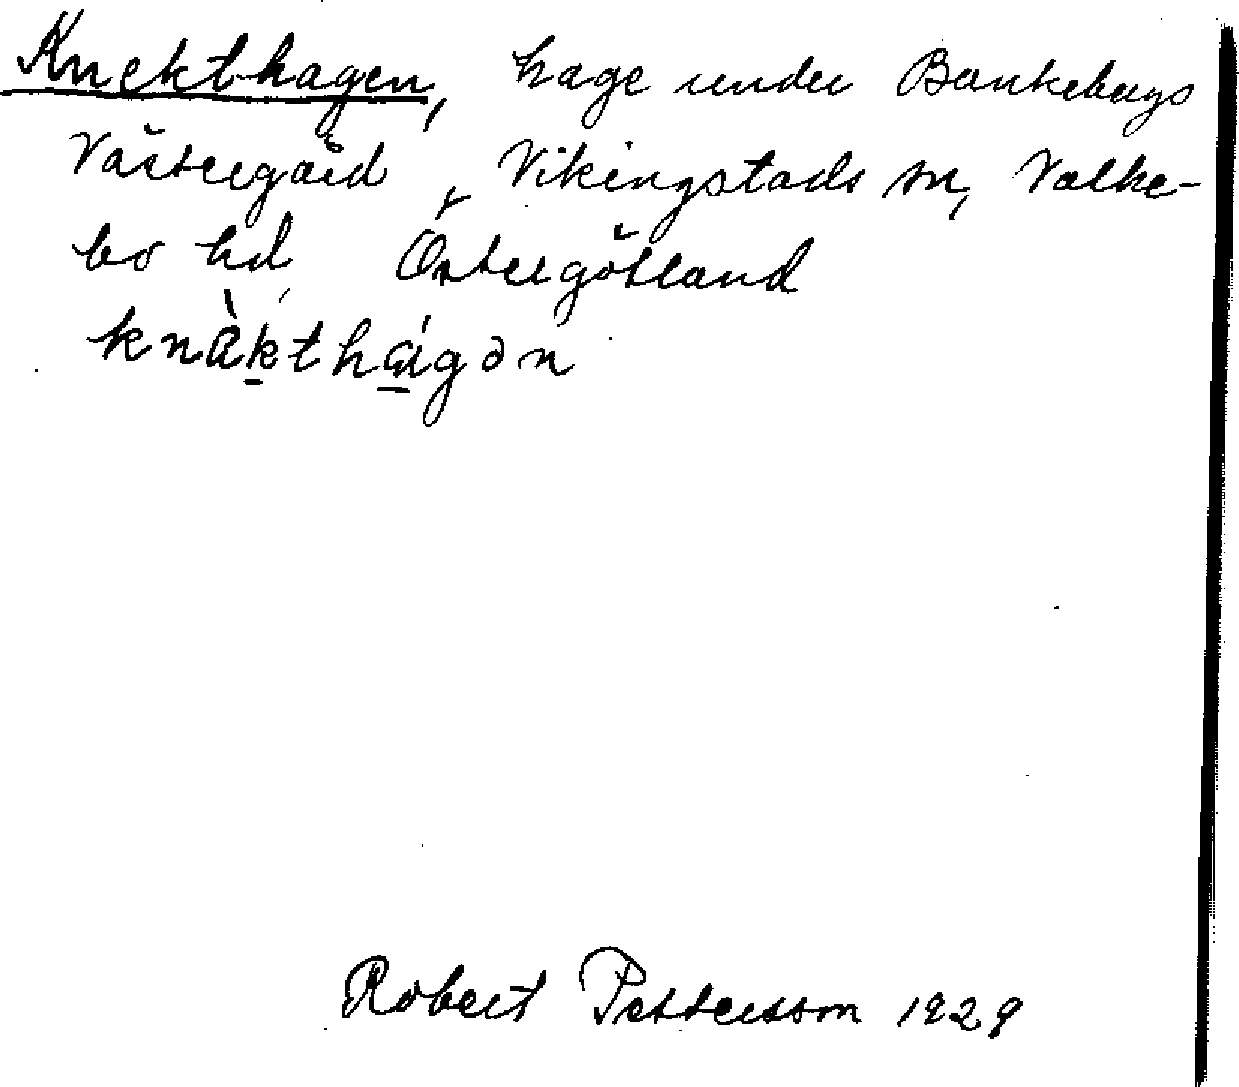 Knekthagen, hage under Bankebergs
Västergård, Vikingstads sn, Valke-
bo hd, Östergötland
knàkthágən
Robert Pettersson 1929